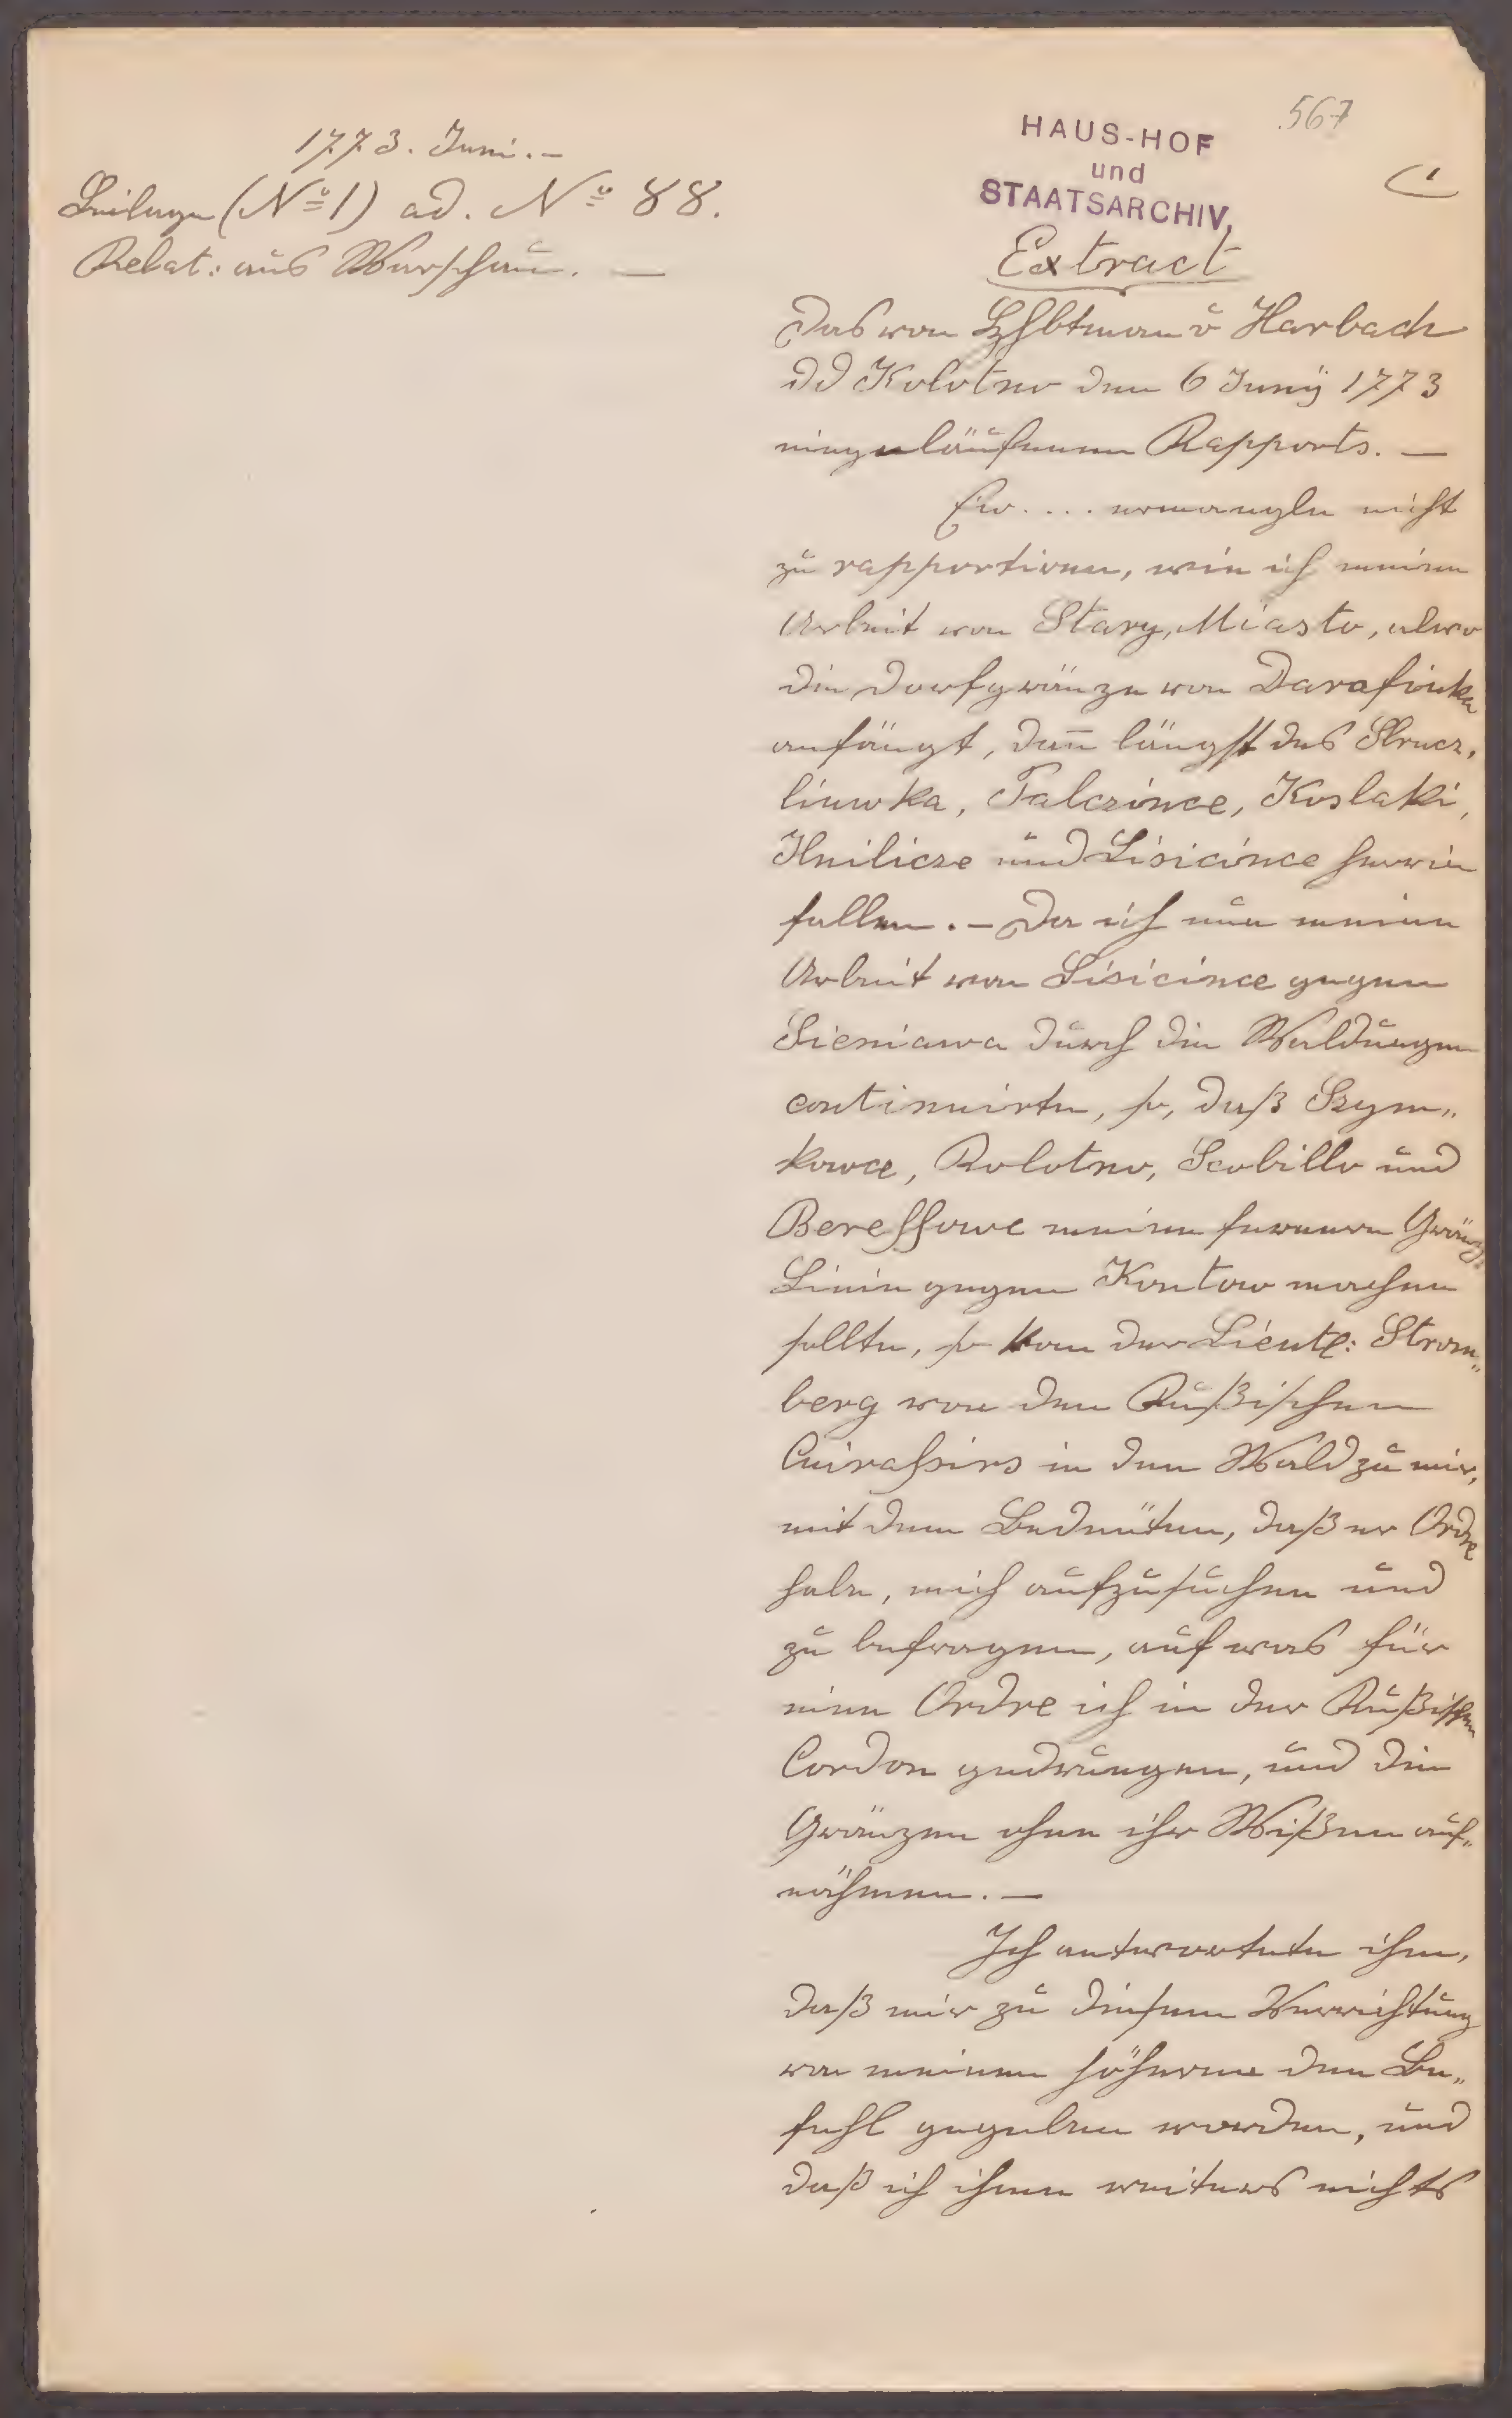 567
1773. Juni. –
Beilage (Nº 1) ad. Nº 88.
Relat: aus Warschau. —
HAUS-HOF
und
STAATSARCHIV.
Extract
Des von v Harbach
dd Kolotno den 6 Junÿ 1773
eingelaufenen Rapports. —
Ew. . . . ermangle nicht
zu rapportiren, wie ich meine
Arbeit von Stary, Miasto, alwo
die Dorfgränze von Darafinka
anfängt, dan̄ längst des
liuwka, Falczince, Koslaki,
Hnilicze und Lisicince herein
fallen. – Da ich nun meine
Arbeit von Lisicince gegen
Sieniawa durch die Waldungen
continuirte, so, daß Szym„
kowce, Kolotno, Scobillo und
Beressowe meine fernere Gränz„
Linie gegen Kontow machen
sollte, so kam der Lieut: Strom„
berg von den Rußischen
Cuirassirs in den Wald zu mir,
mit dem Bedeuten, daß er Ordre
habe, mich aufzusuchen und
zu befragen, auf was für
eine Ordre ich in der Rußischen
Cordon gedrungen, und die
Gränzen ohne ihr Wißen auf„
nähmen. —
Ich antwortete ihm,
daß mir zu diesem Verrichtung
von meinen höheren den Be„
fehl gegeben worden, und
daß ich ihnen weiters nichts